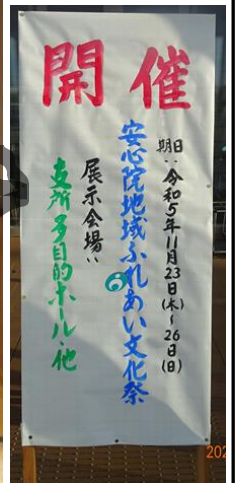 開催
期日：令和5年11月23日(木)～26日(日)
安心院地域ふれあい文化祭
展示会場：
支所多目的ホール・他
202